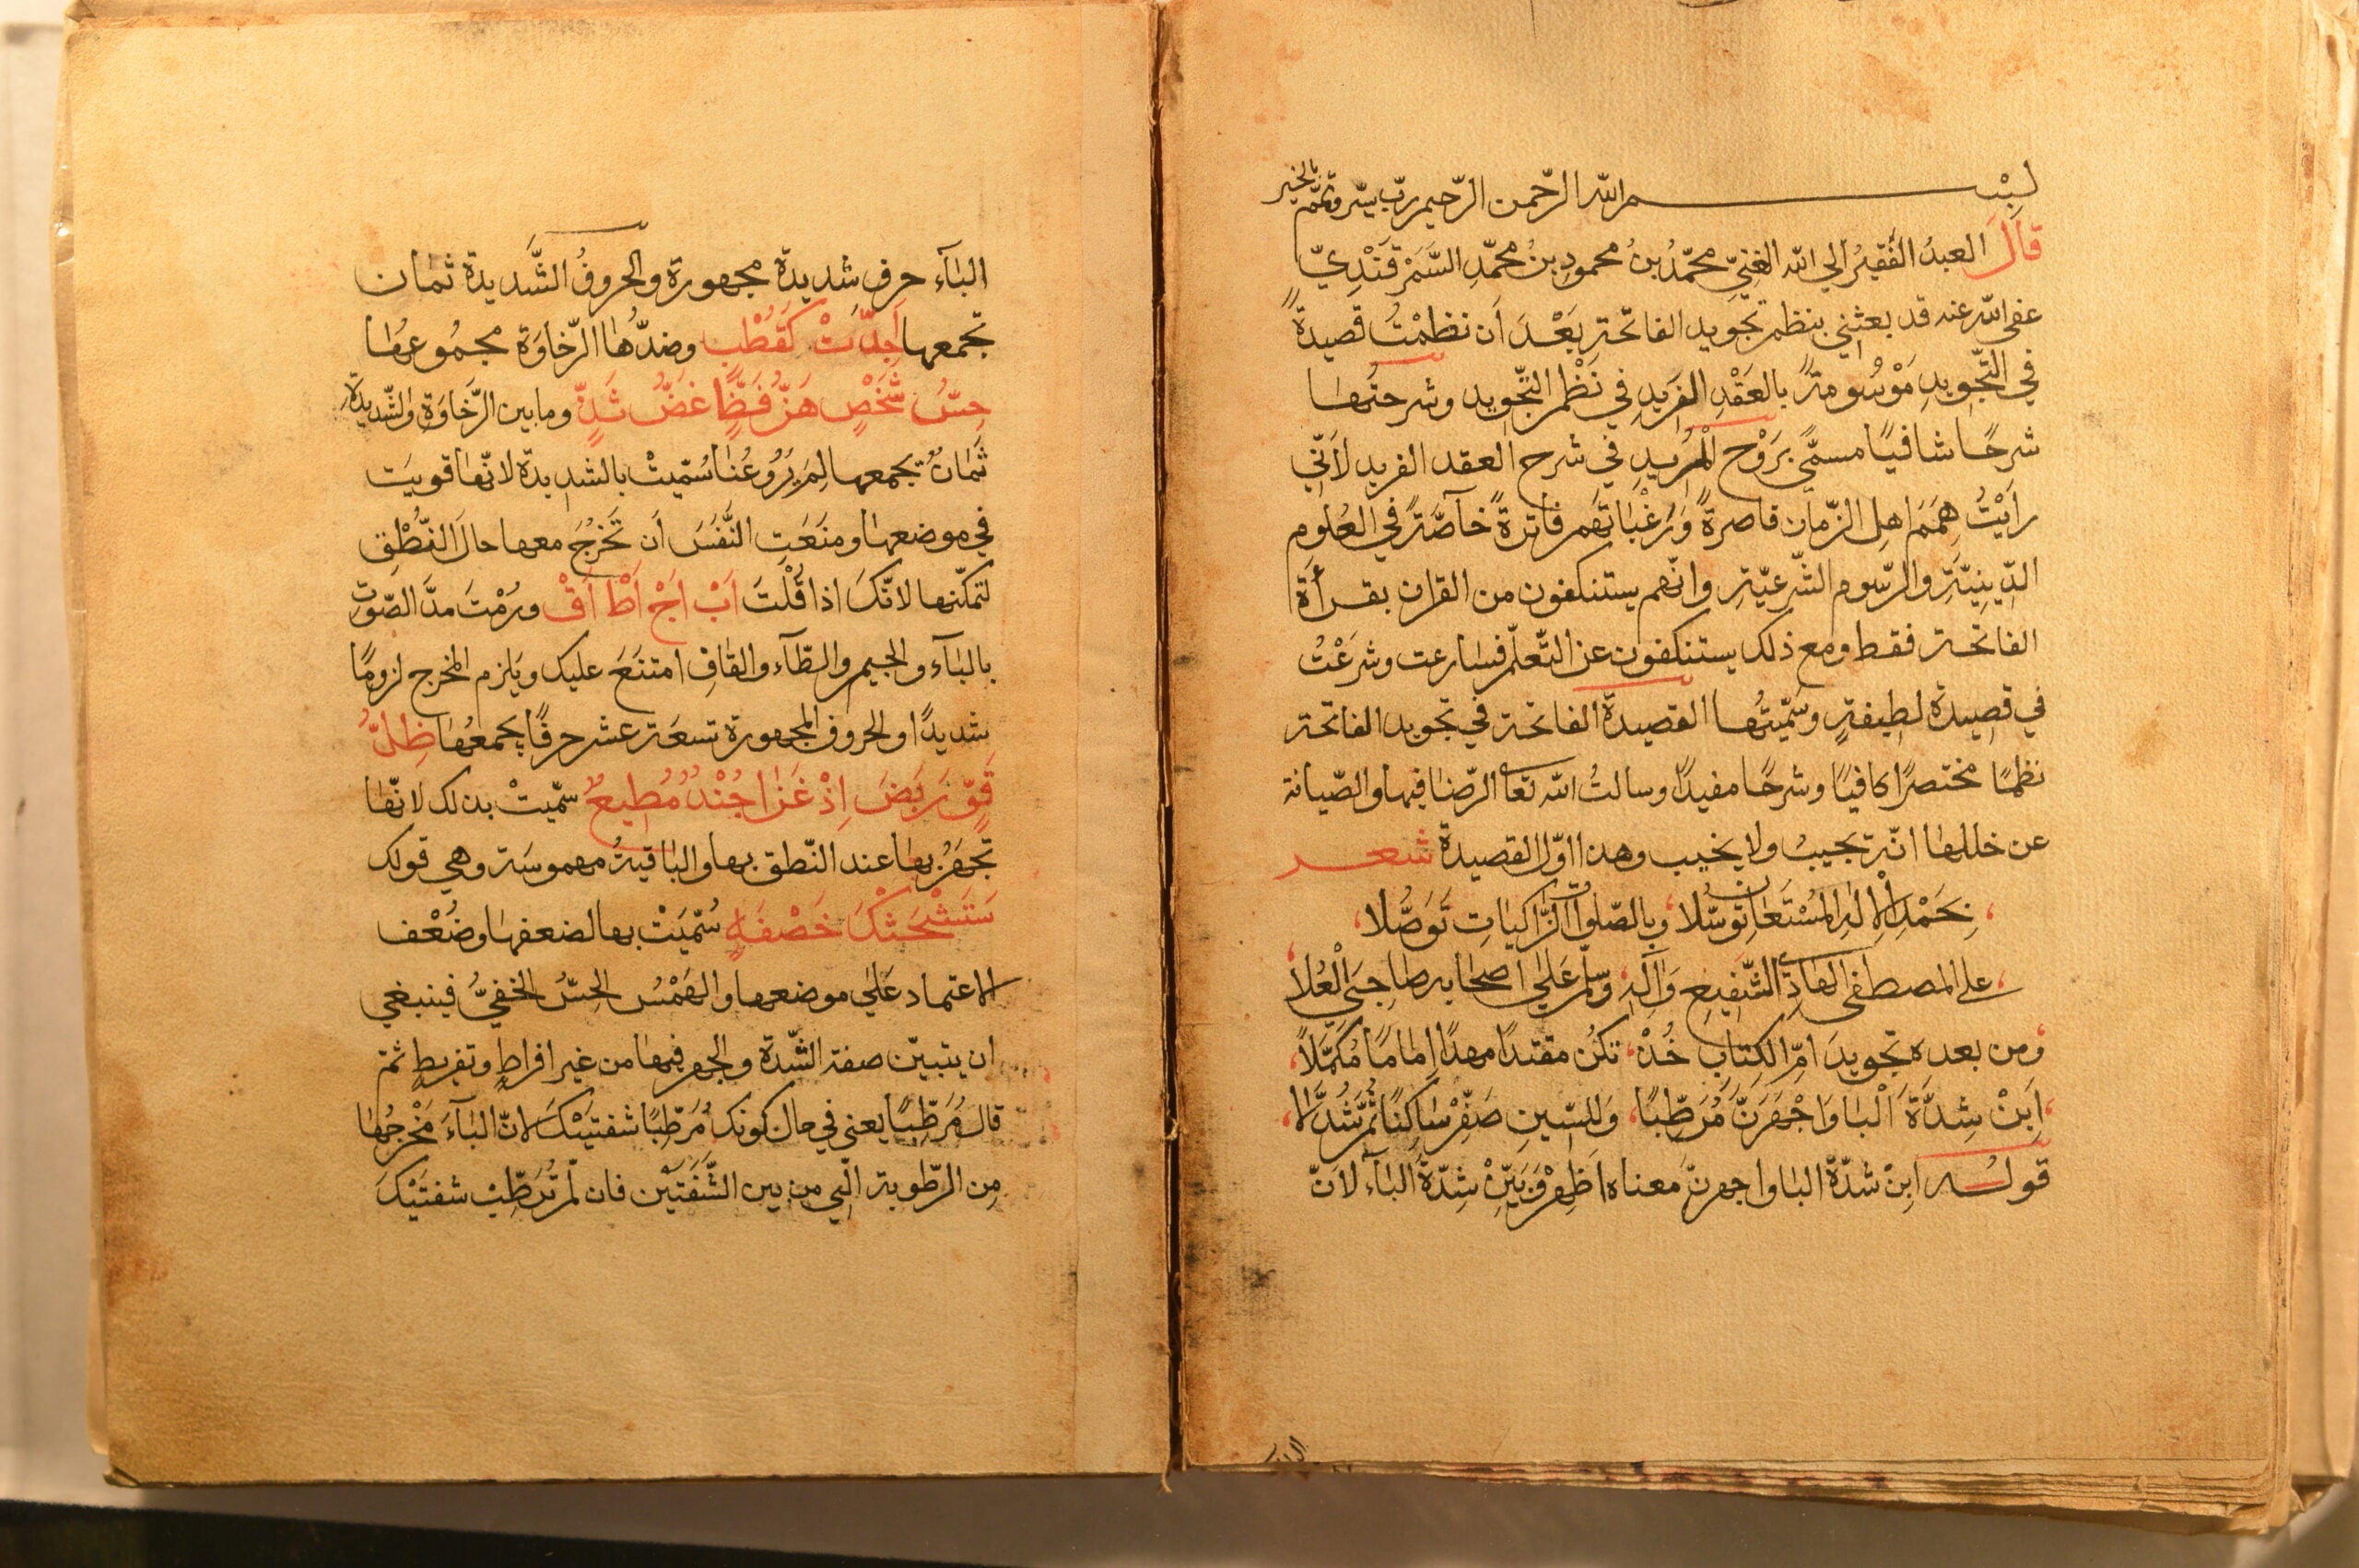 بسم الله الرّحمن الرّحيم ربّ يسّر وتمّم بالخير
قال العبدُ الفقيرُ الي الله الغنيّ محمّدُ بنُ محمودِ بنُ محمّدِ السَّمَرْقَنْدِيّ
عفى الله عنه قد بعثني بنظم تجويد الفاتحة بَعْدَ أن نظمْتُ قصيدةً
في التّجويدِ مَوْسُومةً بالعَقْدِ الفَرِيدِ في نَظْم التّجويد وشرحتُها
شرحًا شافيًا مسمًّى بَرَوْح الْمُرِيدِ في شرح العقد الفريد لأنّي
رأيْتُ هِمَمَ اهلِ الزّمان قاصرةً وَرَغْبَاتهم فاترةً خآصّةً في العُلوم
الدّينيّةِ والرّسوم الشّرعيّةِ وانّهم يستنكفون من القران بقرأة
الفاتحة فقط ومع ذلك يستنكفون عن التّعلّم فسارعت وشرَعْتُ
في قصيدة لطيفةٍ وسَمّيتُها القصيدة الفاتحة في تجويد الفاتحة
نظمًا مختصرًا كافيًا وشرحًا مفيدًا وسالتُ الله تعا الرّضا فيها والصّيانة
عن خللها انّه يجيبُ ولا يخيب وهذا اوّل القصيدة شعر
بِحَمْدِ الْإِلهِ المُسْتَعَانِ توسّلا وبالصّلواتِ الزّاكيَاتِ تَوَصُّلا
على المصطفى الهادِي الشّفِيعِ وَآلِهِ وسلّم عَلى اصحابه صاحبَي الْعُلا
ومن بعده تجويدَ امّ الكِتَابِ خُذْ تكُن مقتدًا مهدًا اِمامًا مُكَمّلاً
اَبِنْ شِدَّةَ الْبَا وَاجْهَرَنَّ مُرَطِّبًا وَللسّينِ صَفِّرْ سَاكِنًا ثُمَّ شَدِّدَلا
قوله ابِنْ شدّة البا واجهرنّ معناه اَظْهِرْ وَبَيّنْ شِدّةَ الباء لانّ
البآء حرف شديدة مجهورة والحروفُ الشَّديدة ثمان
تجمعها اَجِدّتْ كَقُطْبٍ وضدُّها الرّخاوَة مجمُوعها
حِسُّ شَخْصٍ هَزَّ فَظًّا غضّ ثَدٍّ وما بين الرّخاوَةِ والشّديدة
ثَمَانٌ يجمعها لِمَ يَرُوعُنَا سُمّيتْ بالشديدة لانّها قويَت
في موضعها ومنَعَتِ النَّفَسَ أن تَخرُجَ معها حالَ النّطْقِ
لتمكّنها لانّكَ اذا قُلْتَ اَبْ اَجْ اَطْ اَقْ ورُمْتَ مدَّ الصّوتِ
بالبآء والجيم والطّآء والقافِ امتنَعَ عليك ويَلزم المخرج لزومًا
شديدًا والحروف المجهورة تسعة عشر حرفًا يجمعُها ظِلُّ
قَوٍّ رَبَضَ اِذْ غَزَا جُنْدٌ مُطِيعٌ سمّيتْ بذلك لانّها
تجهَرُ بها عند النّطق بها والباقيةُ مهموسَة وهي قولك
سَتَشْحَثُكَ خَصْفَه سُمّيَتْ بها لضعفها وضُعْف
الاعتماد عَلى موضعها والهَمْسُ الحِسّ الخفيّ فينبغي
ان يتبيّن صفة الشّدة والجهر فيها من غير افراطٍ وتفريطٍ ثمّ
قال مُرَطّبًا يعني في حال كونك مُرَطّبًا شفتَيْكَ لانّ البآءَ مَخْرجُها
مِن الرّطوبة الّتي من بين الشَّفَتَيْن فان لّم تُرَطِّبْ شفتَيْكَ